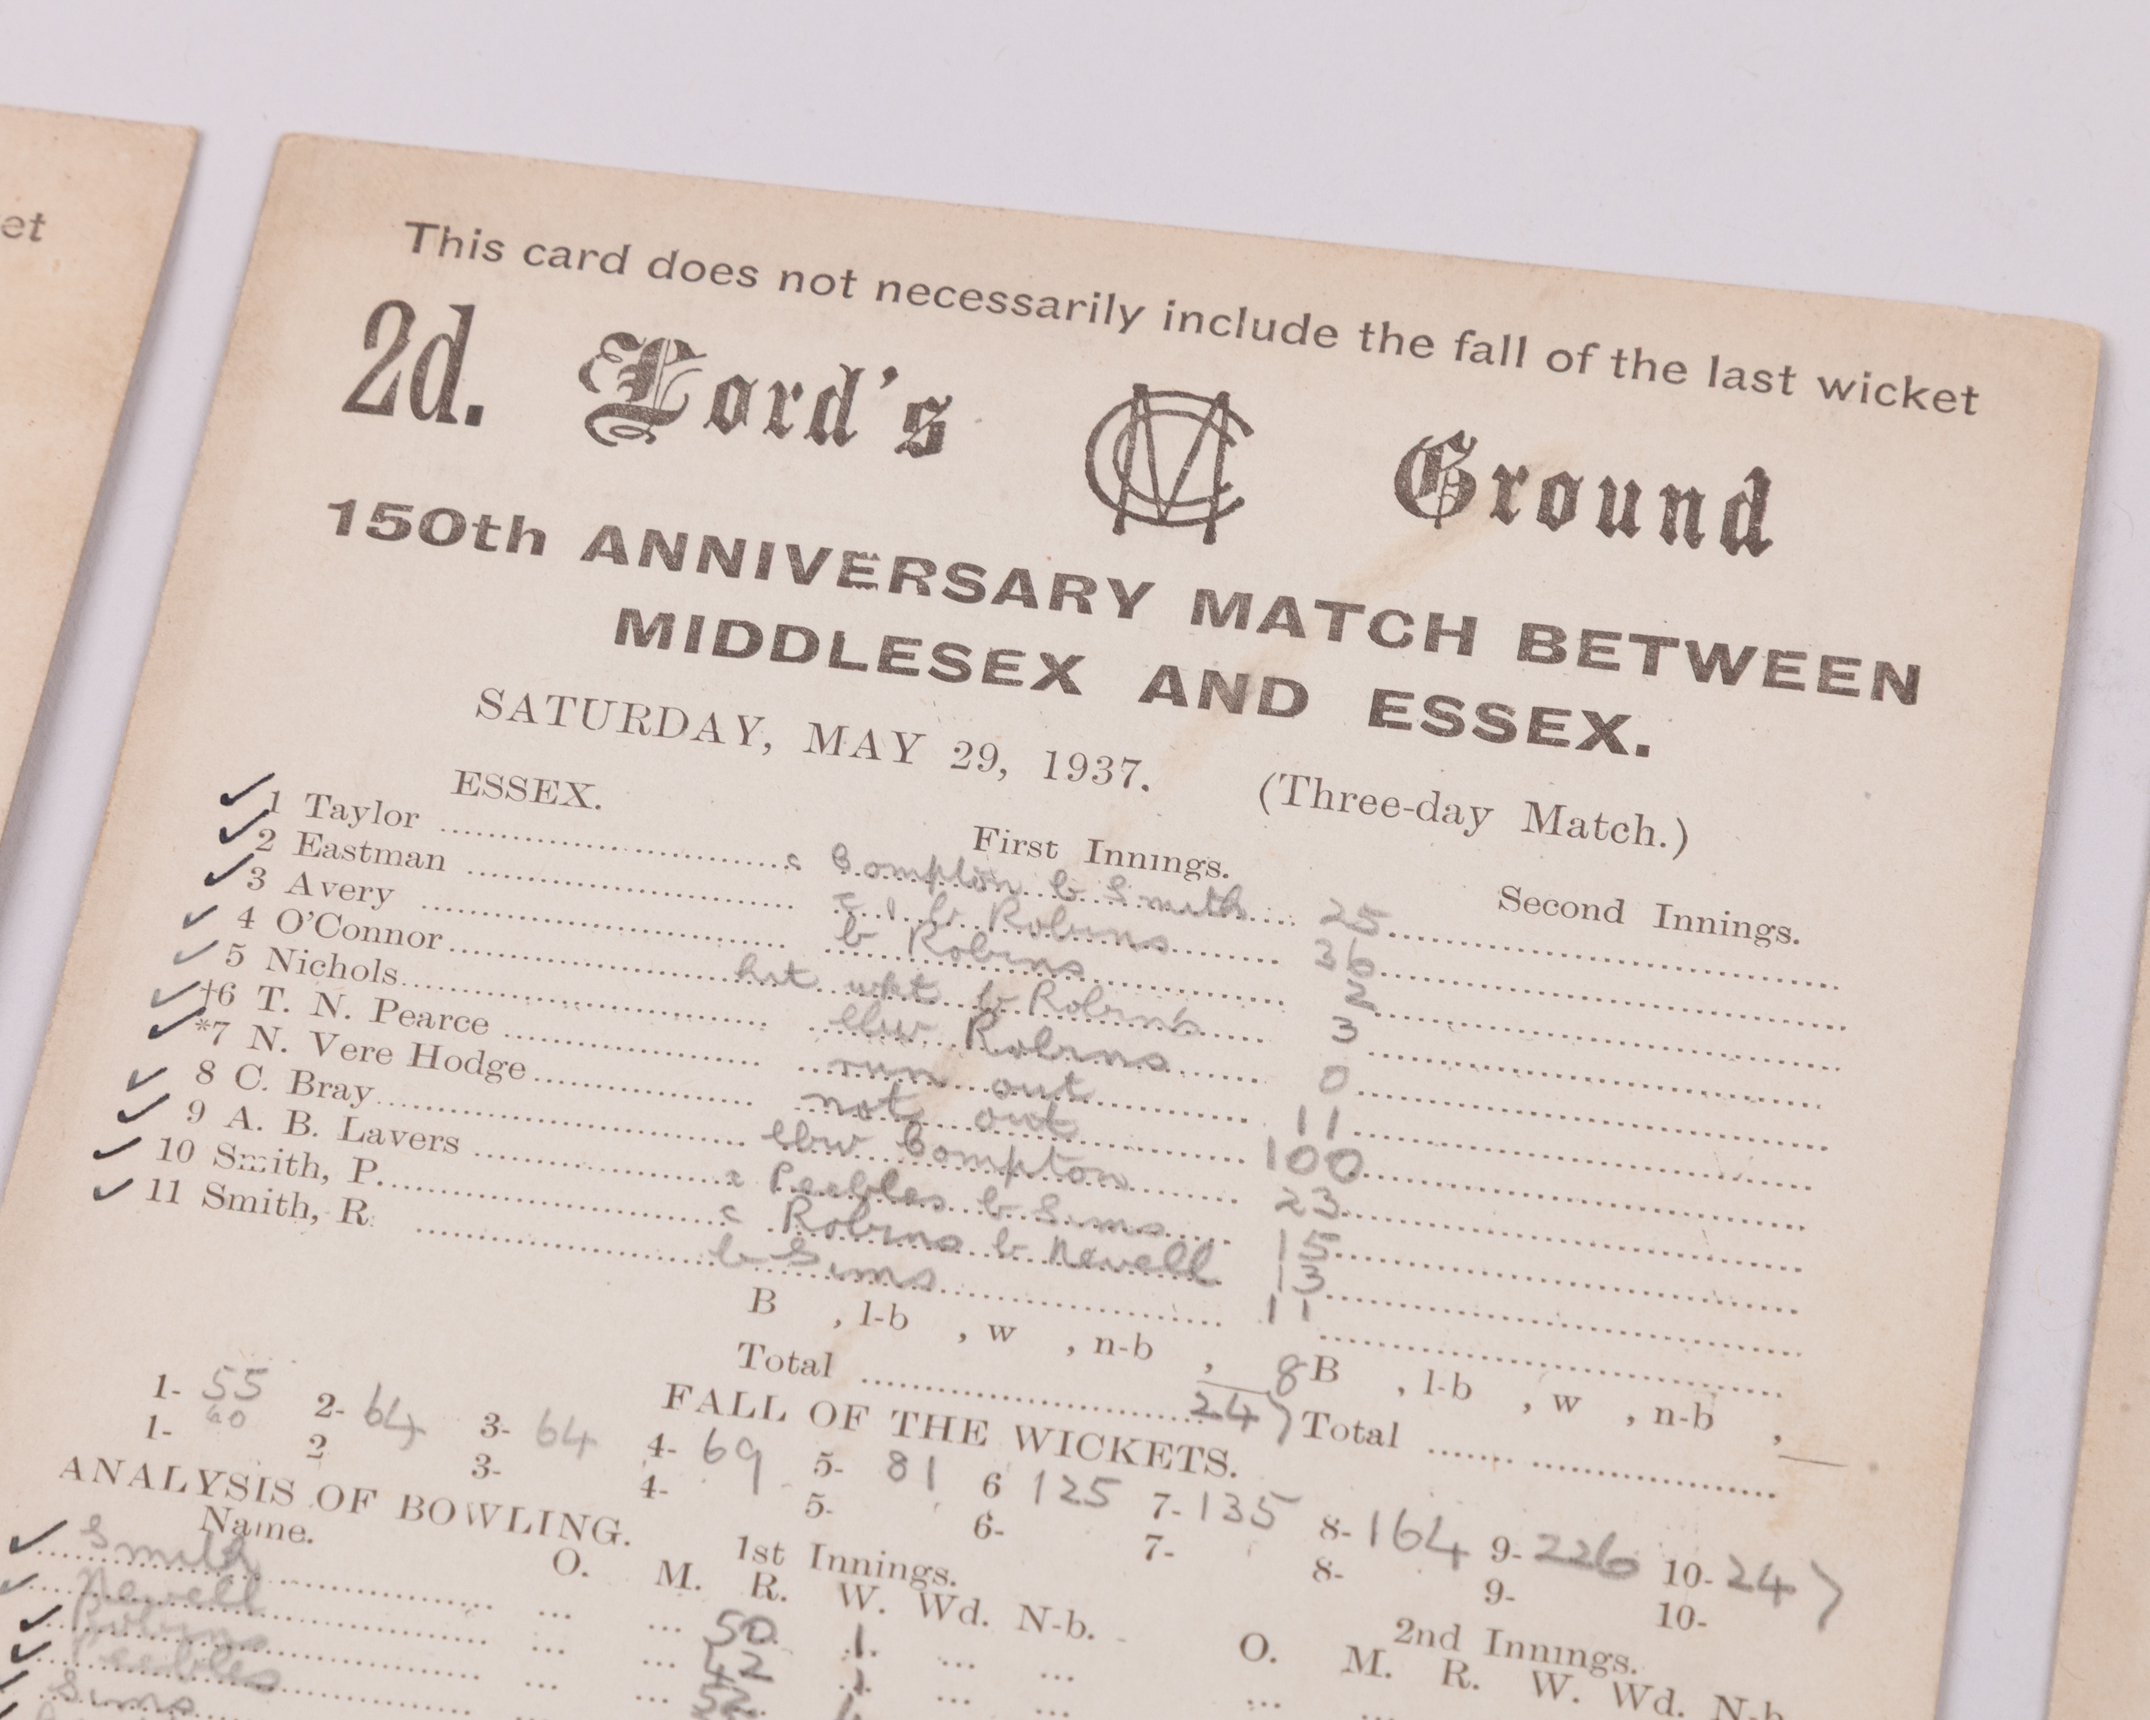 et
This card does not necessarily include the fall of the last wicket
2d. Lord's MCC Ground
150th ANNIVERSARY MATCH BETWEEN
MIDDLESEX AND ESSEX.
SATURDAY, MAY 29, 1937. (Three-day Match.)
ESSEX. First Innings. Second Innings.
1 Taylor c Compton b Smith 25
2 Eastman b Robins 36
3 Avery b Robins 2
4 O'Connor hit wkt b Robins 3
5 Nichols lbw Robins 0
†6 T. N. Pearce run out 11
*7 N. Vere Hodge not out 100
8 C. Bray lbw Compton 23
9 A. B. Lavers c Peebles b Sims 15
10 Smith, P. c Robins b Newell 13
11 Smith, R. b Sims 11
B , l-b , w , n-b , 8 B , l-b , w , n-b ,
Total 247 Total
FALL OF THE WICKETS.
1- 55 2- 64 3- 64 4- 69 5- 81 6 125 7- 135 8- 164 9- 226 10- 247
1- 60 2 3- 4- 5- 6- 7- 8- 9- 10-
ANALYSIS OF BOWLING. 1st Innings. 2nd Innings.
Name. O. M. R. W. Wd. N-b. O. M. R. W. Wd. N-b
Smith 50 1
Newell 42 1
Robins 52
Peebles
Sims